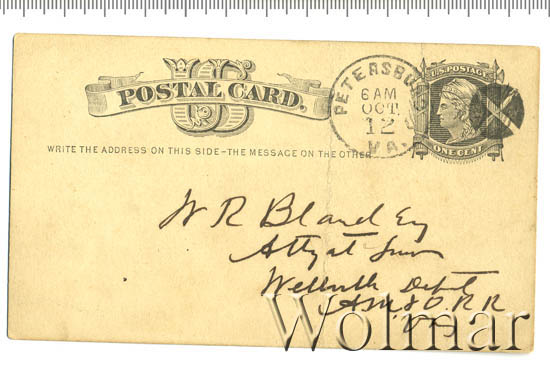 US
POSTAL CARD.
WRITE THE ADDRESS ON THIS SIDE-THE MESSAGE ON THE OTHER
PETERSBU
6 AM
OCT
12
VA.
U.S. POSTAGE
ONE CENT
W R Bland Esq
Atty at Law
Depot
A M & O. R R
Va
Wolmar